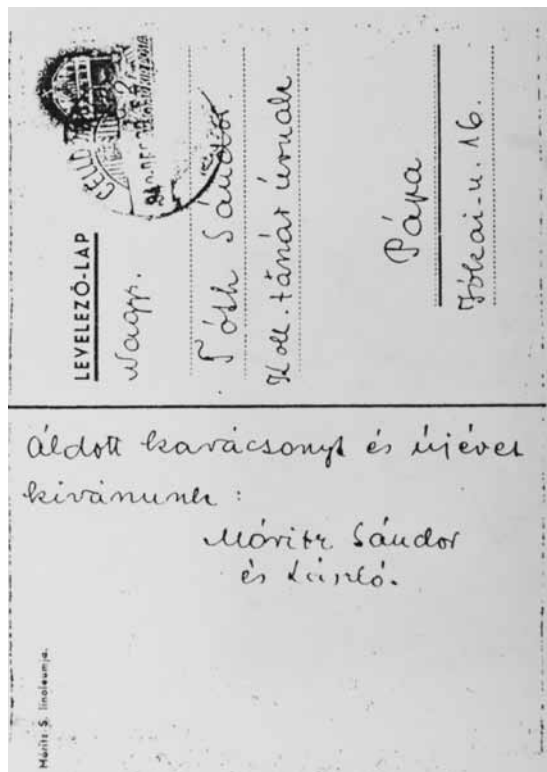 LEVELEZŐ-LAP
Nagys.
Tóth Sándor
Koll. tanár úrnak
Pápa
Jókai-u. 16.
Áldott karácsonyt és újévet
kívánunk:
Móritz Sándor
és László.
Móritz S. linoleumja.